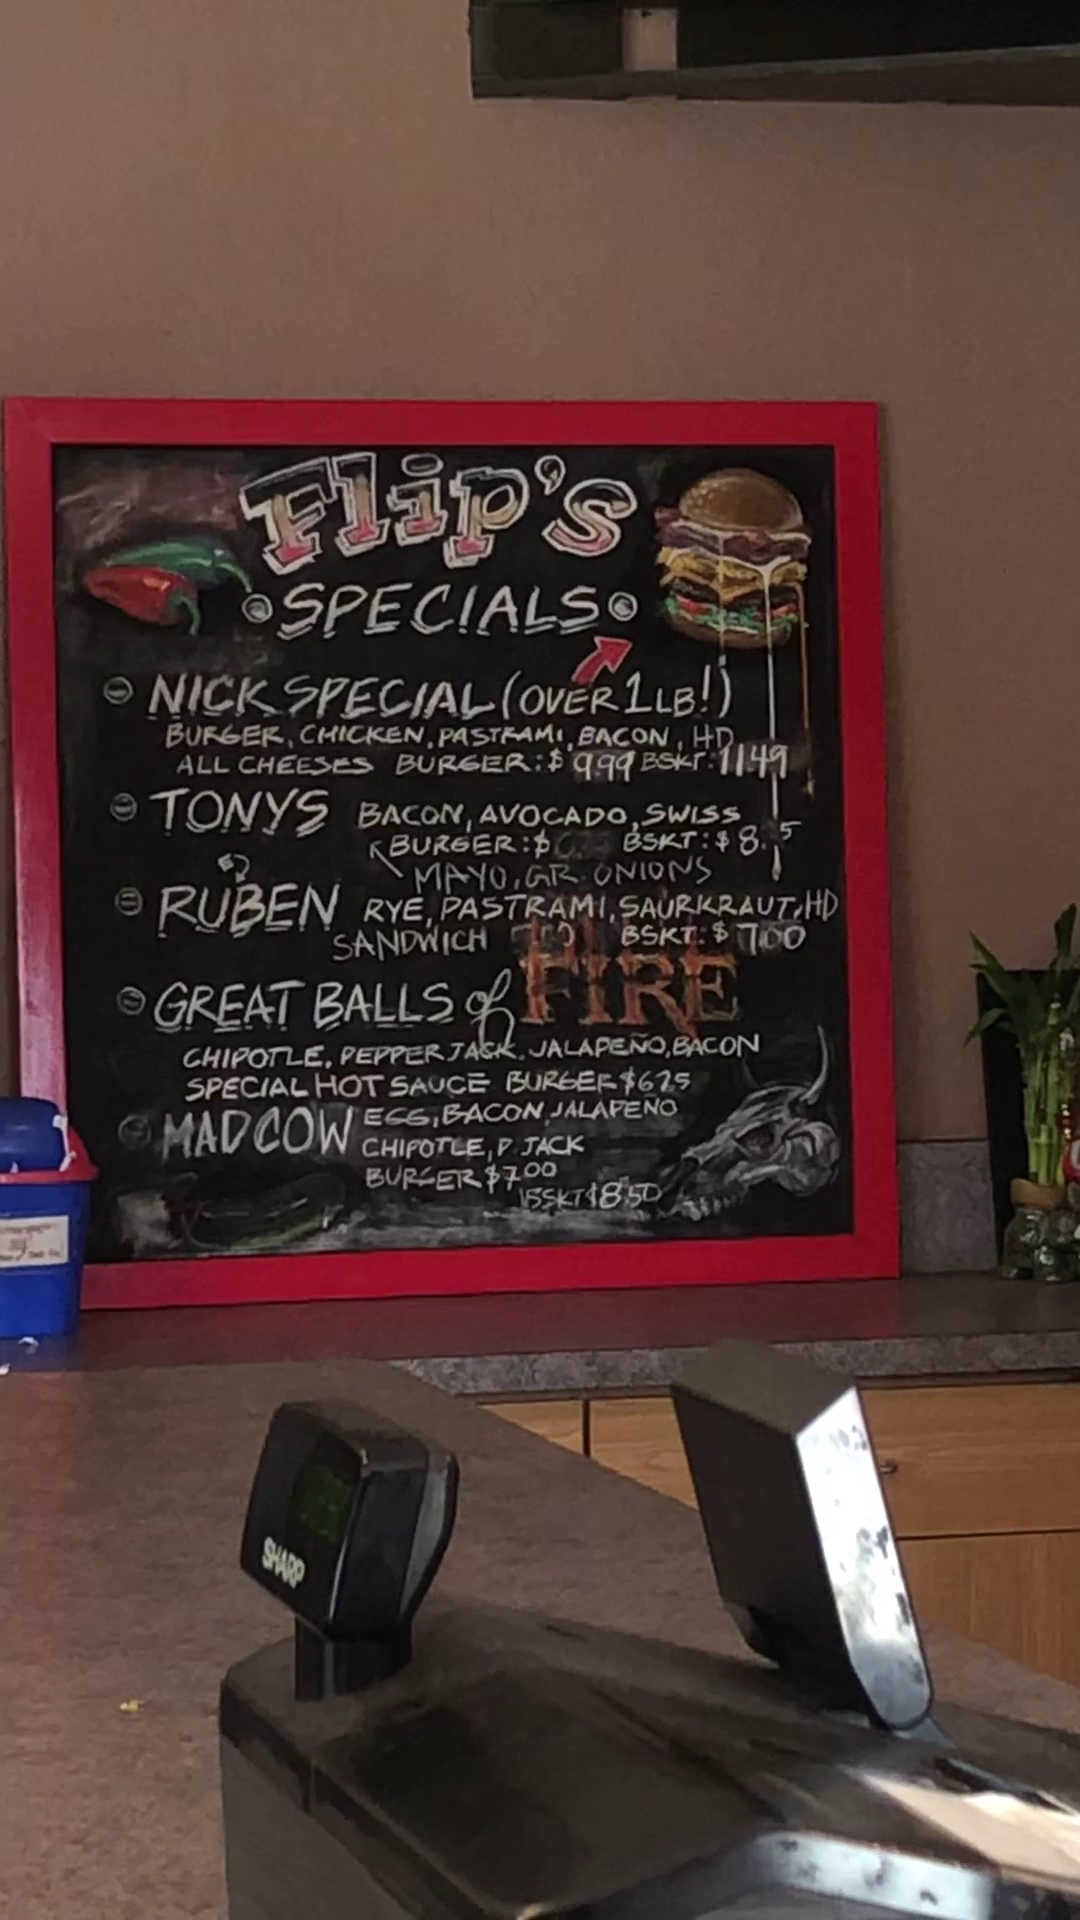 Flip's
SPECIALS
NICK SPECIAL (OVER 1 LB!)
BURGER, CHICKEN, PASTRAMI, BACON, HD
ALL CHEESES BURGER: $ 9.99 BSKT: 11.49
TONYS BACON, AVOCADO, SWISS
BURGER: $ BSKT: $
MAYO, GR. ONIONS
RUBEN RYE, PASTRAMI, SAURKRAUT, HD
SANDWICH BSKT: $ 7.00
GREAT BALLS of FIRE
CHIPOTLE, PEPPER JACK, JALAPEÑO, BACON
SPECIAL HOT SAUCE BURGER $625
MAD COW EGG, BACON, JALAPENO
CHIPOTLE, P. JACK
BURGER $7.00
BSKT $8.50
SHARP